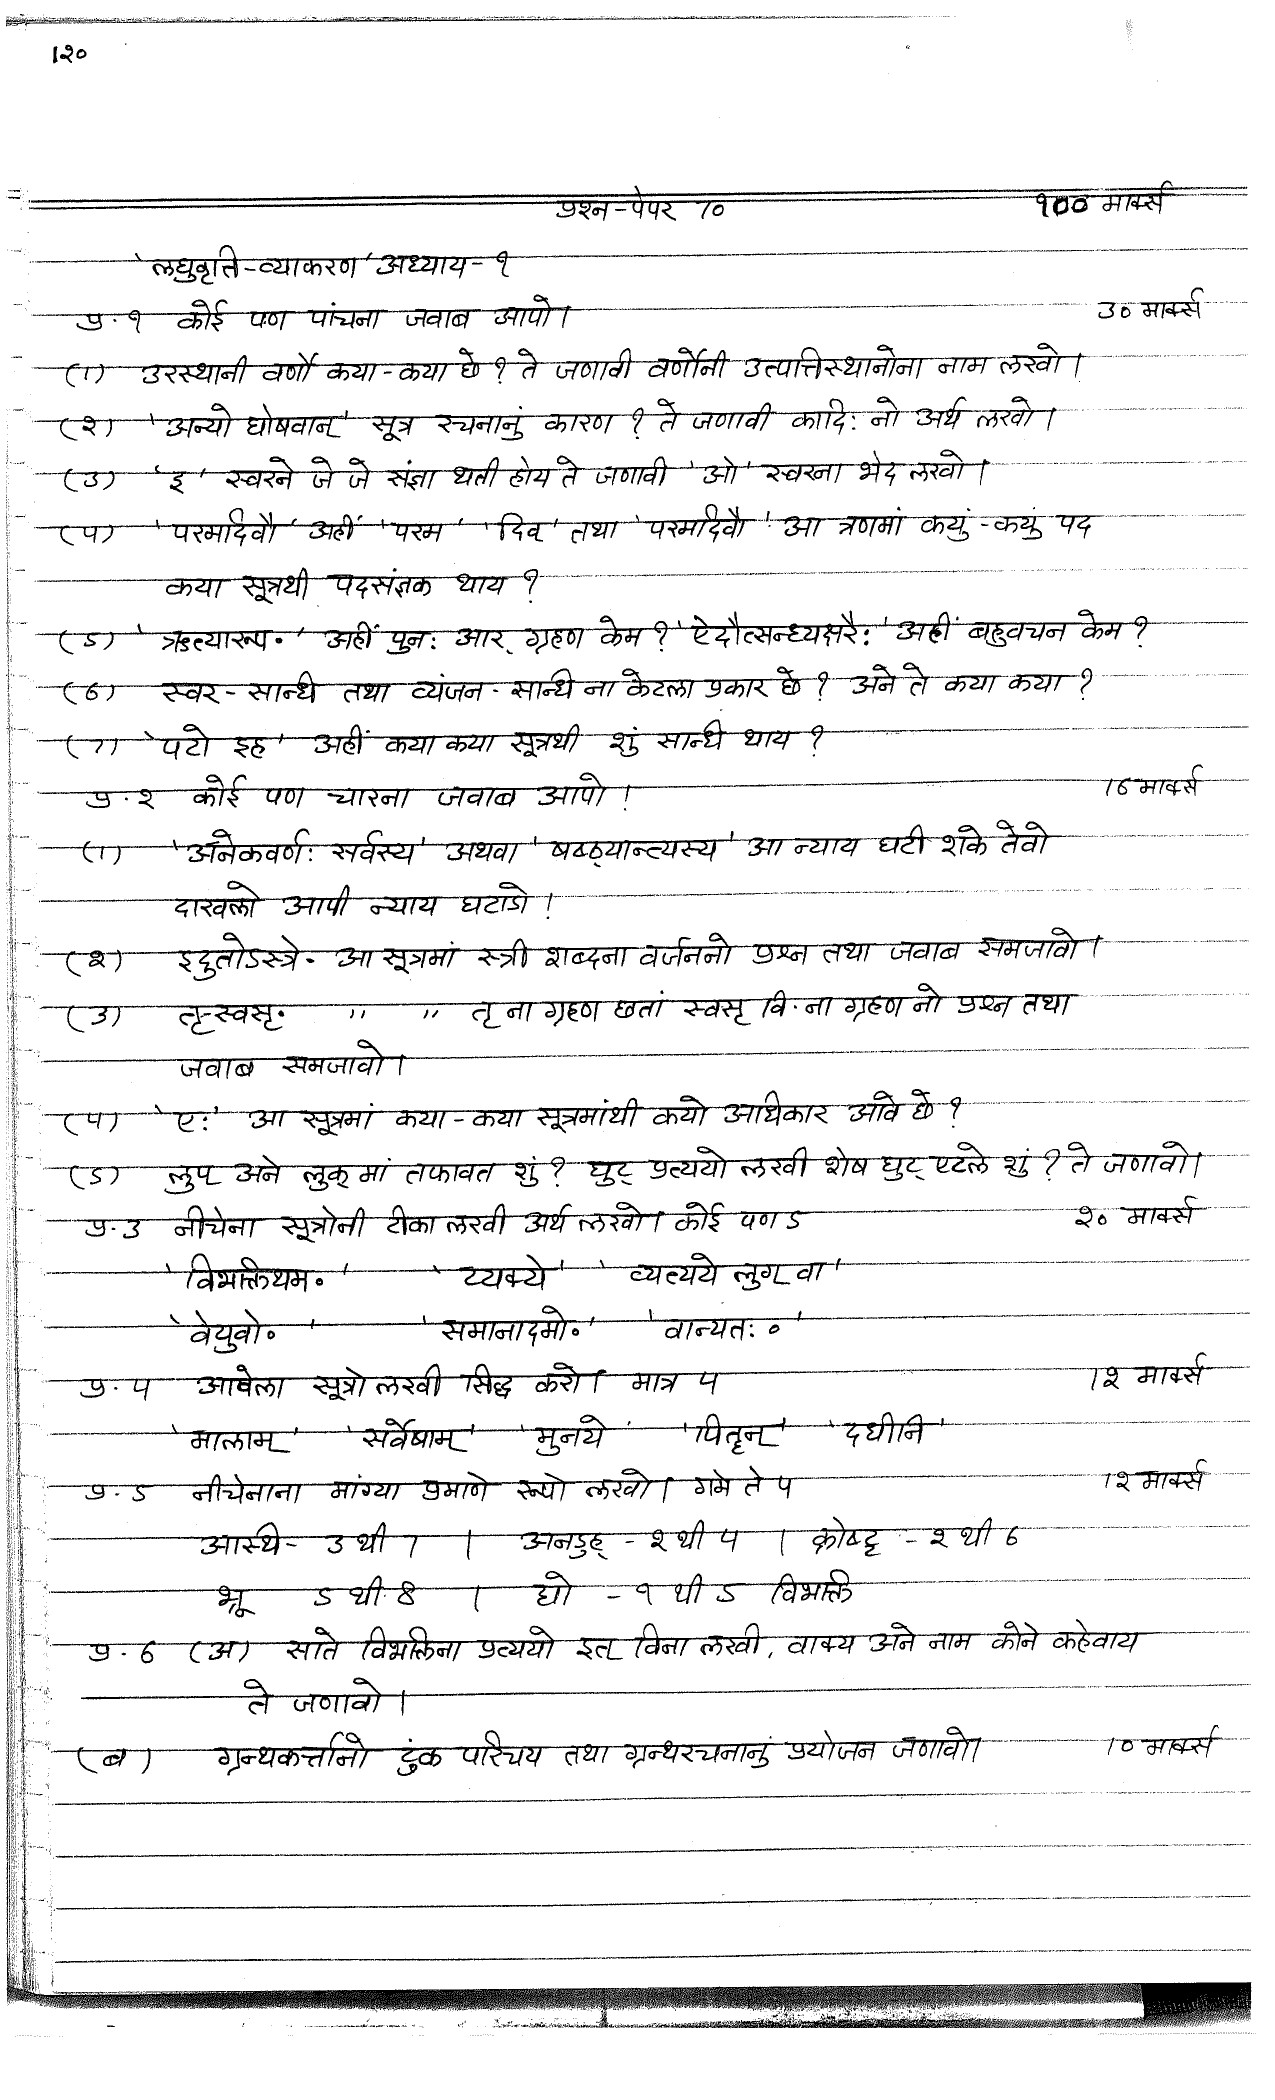 १२०
प्रश्न-पेपर १० १०० मार्क्स
'लघुवृत्ति-व्याकरण' अध्याय-१
प्र.१ कोई पण पांचना जवाब आपो। ३० मार्क्स
(१) उरस्थानी वर्णो कया-कया छे ? ते जणावी वर्णोनी उत्पत्तिस्थानोना नाम लखो।
(२) 'अन्यो घोषवान्' सूत्र रचनानुं कारण ? ते जणावी कादि: नो अर्थ लखो।
(३) 'इ' स्वरने जे जे संज्ञा थती होय ते जणावी 'ओ' स्वरना भेद लखो।
(४) 'परमदिवौ' अहीं 'परम' 'दिव्' तथा 'परमदिवौ' आ त्रणमां कयुं-कयुं पद
कया सूत्रथी पदसंज्ञक थाय ?
(५) 'ऋत्यारुप.' अहीं पुन: आर् ग्रहण केम ? 'ऐदौत्सन्ध्यक्षरै:' अहीं बहुवचन केम ?
(६) स्वर-सन्धि तथा व्यंजन-सन्धि ना केटला प्रकार छे ? अने ते कया कया ?
(७) 'पटो इह' अहीं कया कया सूत्रथी शुं सन्धि थाय ?
प्र.२ कोई पण चारना जवाब आपो। १६ मार्क्स
(१) 'अनेकवर्ण: सर्वस्य' अथवा 'षष्ठ्यान्त्यस्य' आ न्याय घटी शके तेवो
दाखलो आपी न्याय घटाडो।
(२) इदुतोऽस्त्रे. आ सूत्रमां स्त्री शब्दना वर्जननो प्रश्न तथा जवाब समजावो।
(३) तृ-स्वसृ. " " तृ ना ग्रहण छतां स्वसृ वि.ना ग्रहण नो प्रश्न तथा
जवाब समजावो।
(४) 'ए:' आ सूत्रमां कया-कया सूत्रमांथी कयो अधिकार आवे छे ?
(५) लुप् अने लुक् मां तफावत शुं ? घुट् प्रत्ययो लखी शेष घुट् एटले शुं ? ते जणावो।
प्र.३ नीचेना सूत्रोनी टीका लखी अर्थ लखो। कोई पण ५ २० मार्क्स
'विभक्तिथम॰' 'य्यक्ये' 'व्यत्यये लुग् वा'
'वेयुवो॰' 'समानादमो॰' 'वान्यत:॰'
प्र.४ आवेला सूत्रो लखी सिद्ध करो। मात्र ४ १२ मार्क्स
'मालाम्' 'सर्वेषाम्' 'मुनये' 'पितॄन्' 'दधीनि'
प्र.५ नीचेनाना मांग्या प्रमाणे रूपो लखो। गमे ते ४ १२ मार्क्स
अस्थि- ३ थी ७ । अनडुह् - २ थी ४ । क्रोष्टृ - २ थी ६
भ्रू ५ थी ८ । द्यो - १ थी ५ विभक्ति
प्र.६ (अ) साते विभक्तिना प्रत्ययो इत् विना लखी, वाक्य अने नाम कोने कहेवाय
ते जणावो।
(ब) ग्रन्थकर्त्तानो टुंक परिचय तथा ग्रन्थरचनानुं प्रयोजन जणावो। १० मार्क्स